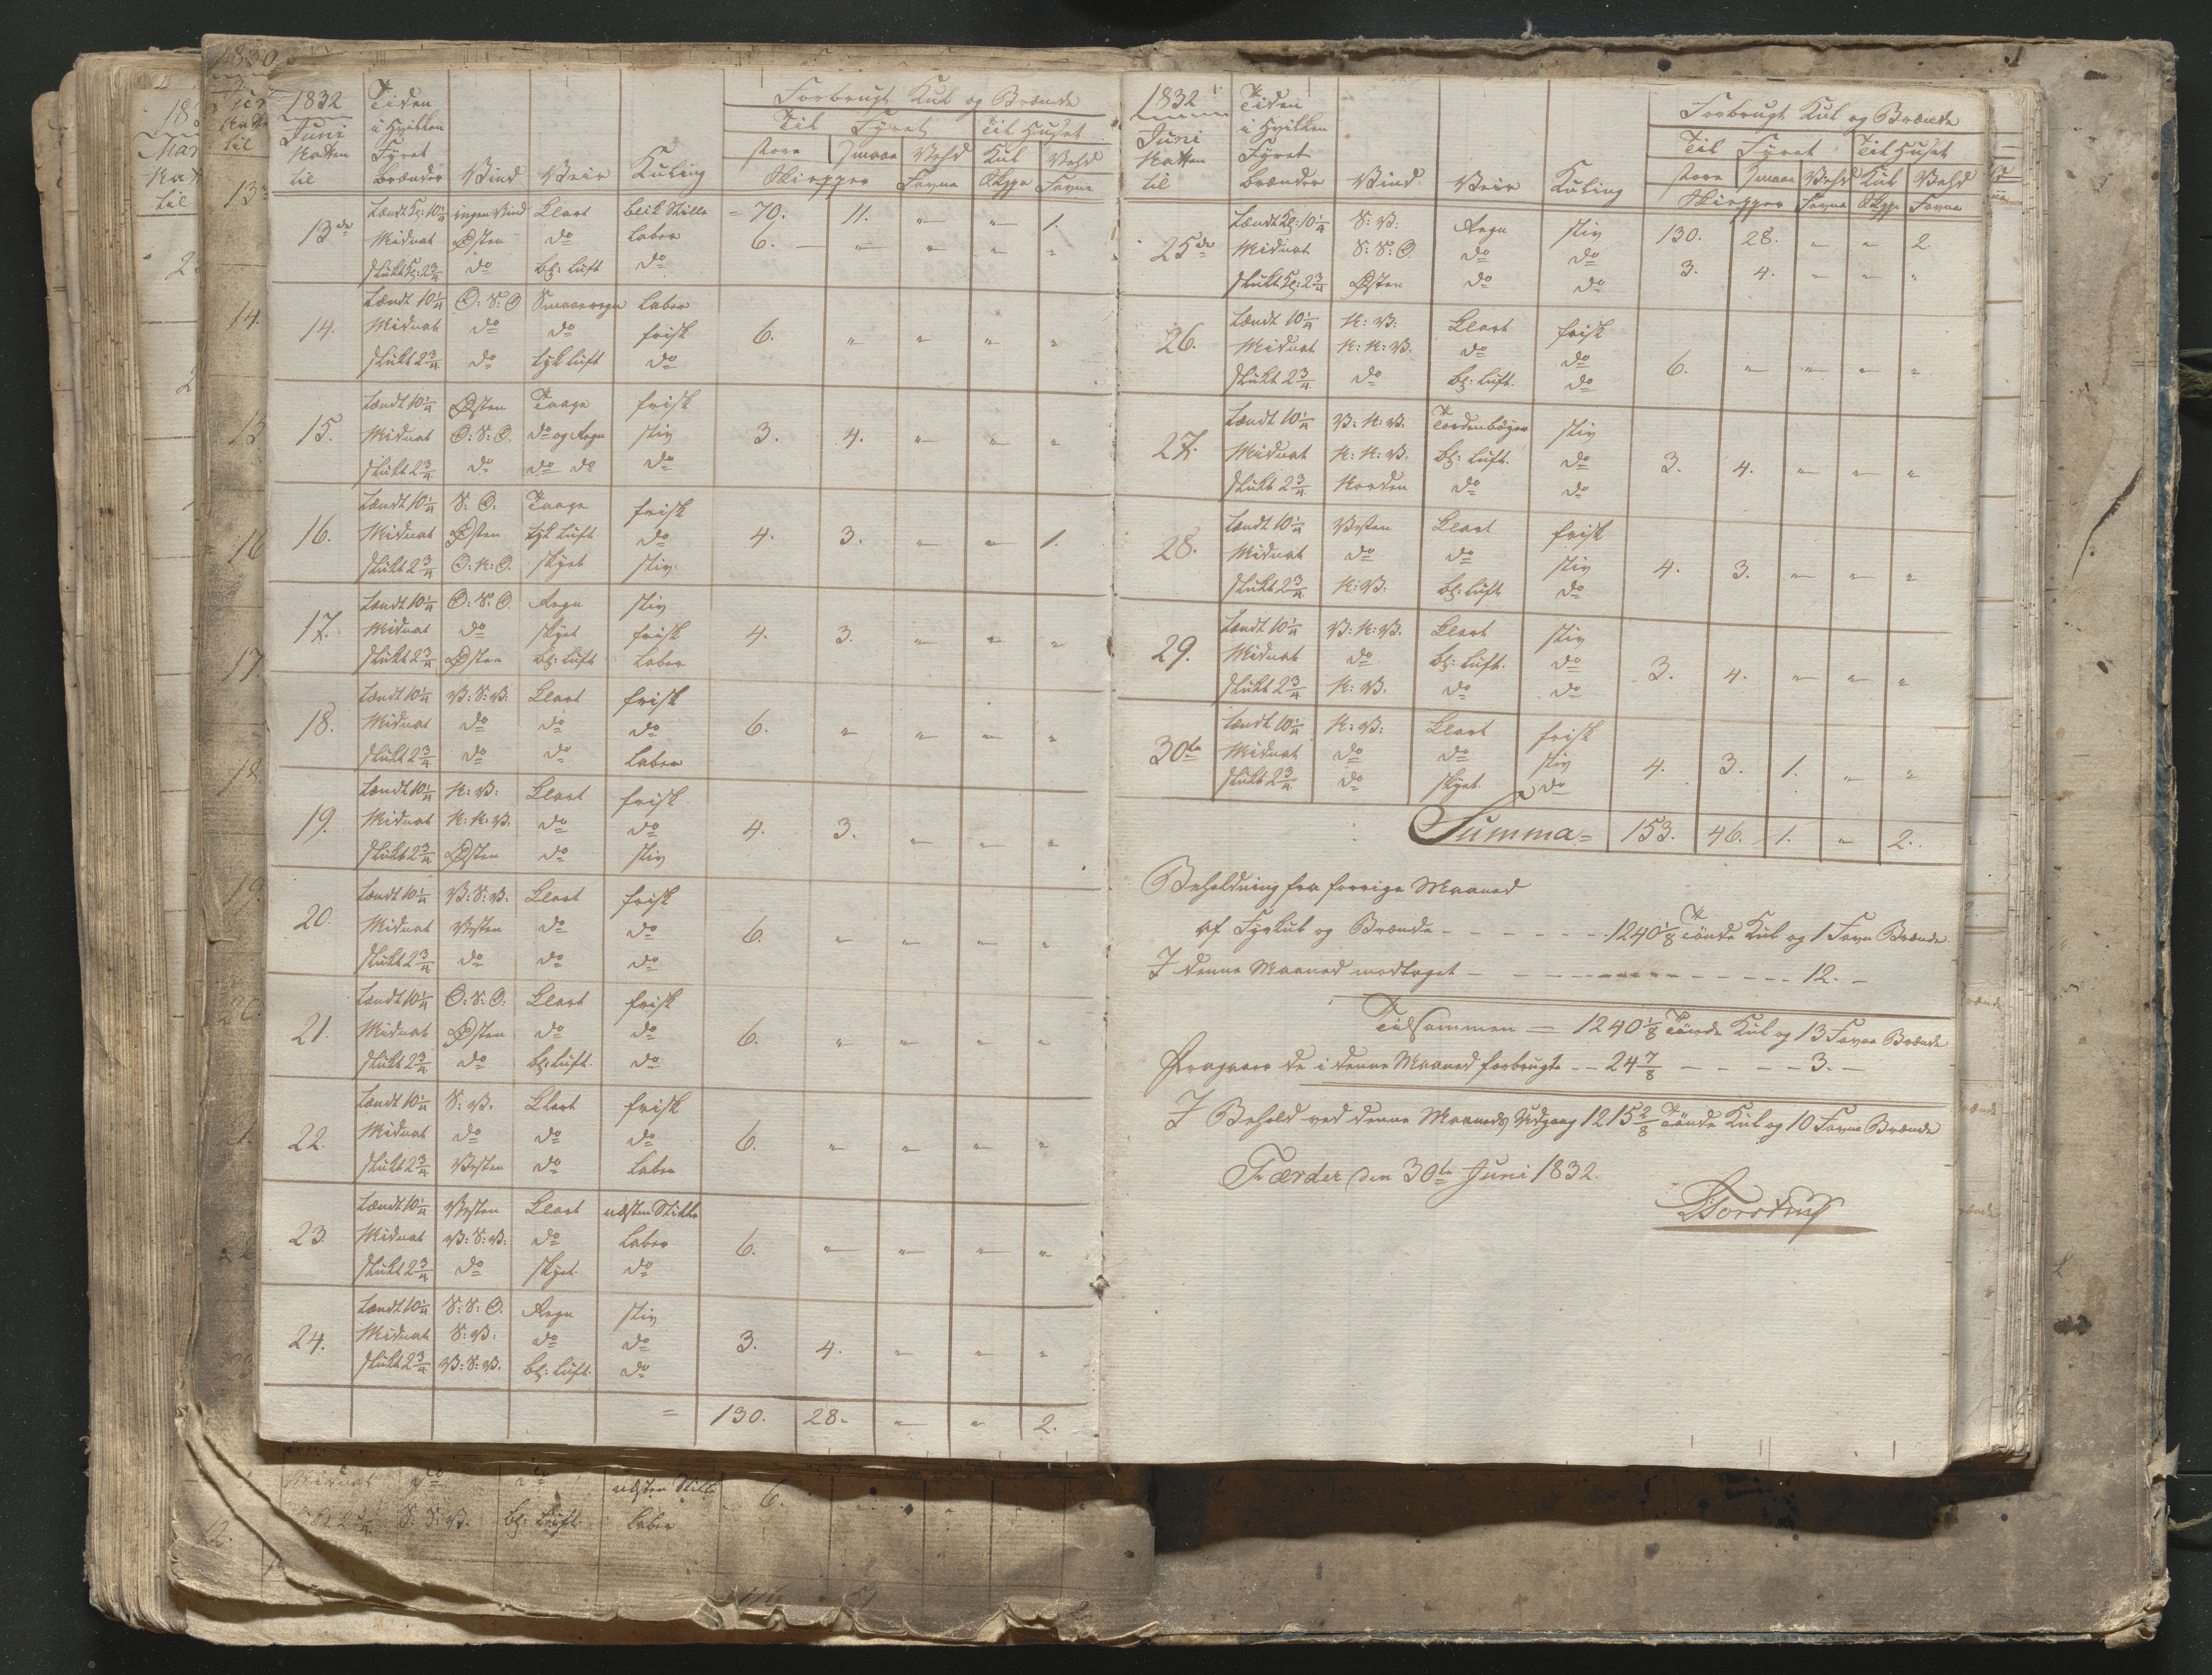 1832 Tiden Forbrugt Kul og Brænde
Juni i Hvilken Til Fyret Til Huset
Natten Fyret store Smaae Vehd Kul Vehd
til brænder Vind Veir Kuling Skiepper Favne Skpp Favne
tændt Kl: 10¼ ingen Vind Klart blik Stille = 70. 11. " " 1.
13de Midnat Østen do laber 6. " " " "
slukt Kl: 2¾ do bl: luft do
tændt 10¼ O: S: O Smaaeregn laber
14. Midnat do do frisk 6. " " " "
slukt 2¾ do tyk luft do
tændt 10¼ Østen Taage frisk
15. Midnat O: S: O. do og Regn stiv 3. 4. " " "
slukt 2¾ do do do do
tændt 10¼ S: O: Taage frisk
16. Midnat Østen tyk luft do 4. 3. " " 1.
slukt 2¾ O: N: O. skyet stiv
tændt 10¼ O: S: O Regn stiv
17. Midnat do skyet frisk 4. 3. " " "
slukt 2¾ Østen bl: luft laber
tændt 10¼ V: S: V: Klart frisk
18. Midnat do do do 6. " " " "
slukt 2¾ do do laber
tændt 10¼ N: V: Klart frisk
19. Midnat N: N: V: do do 4. 3. " " "
slukt 2¾ Østen do stiv
tændt 10¼ V: S: V: Klart frisk
20. Midnat Vesten do do 6. " " " "
slukt 2¾ do do do
tændt 10¼ O: S: O: Klart frisk
21. Midnat Østen do do 6. " " " "
slukt 2¾ do bl: luft. do
tændt 10¼ S: V. Klart frisk
22. Midnat do do do 6. " " " "
slukt 2¾ Vesten do laber
tændt 10¼ Vesten Klart næsten Stille
23. Midnat V: S: V: do laber 6. " " " "
slukt 2¾ do skyet do
tændt 10¼ S: S: O. Regn stiv
24. Midnat S: V: do do 3. 4. " " "
slukt 2¾ V: S: V. bl: luft. do
= 130. 28. " " 2.
1832 Tiden Forbrugt Kul og Brænde
Juni i Hvilken Til Fyret Til Huset
Natten Fyret store Smaae Vehd Kul Vehd
til brænder Vind Veir Kuling Skiepper Favne Skpp Favne
tændt Kl: 10¼ S: V: Regn stiv 130. 28. " " 2.
25de Midnat S: S: O. do do 3. 4. " " "
slukt Kl: 2¾ Østen do do
tændt 10¼ N: V: Klart frisk
26. Midnat N: N: V. do do 6. " " " "
slukt 2¾ do bl: luft. do
tændt 10¼ V: N: V. Tordenbyger stiv
27. Midnat N: N: V. bl: luft. do 3. 4. " " "
slukt 2¾ Norden do do
tændt 10¼ Vesten Klart frisk
28. Midnat do do stiv 4. 3. " " "
slukt 2¾ N: V: bl: luft do
tændt 10¼ V: N: V. Klart stiv
29. Midnat do bl: luft. do 3. 4. " " "
slukt 2¾ N: V. do do
tændt 10¼ N: V: Klart frisk
30te Midnat do do stiv 4. 3. 1. " "
slukt 2¾ do skyet do
Summa = 153. 46. 1. " 2.
Beholdning fra forrige Maaned
af Fyrkul og Brænde - - - - - - 1240⅛ Tönde Kul og 1 Favn Brænde
I denne Maaned modtaget - - - - - - - - - 12. -
Tilsammen = 1240⅛ Tönde Kul og 13 Favne Brænde
Fragaaer de i denne Maaned forbrugte - - 24⅞ - - - - 3. -
I Behold ved denne Maaneds Udgang 1215 2/8 Tönde Kul og 10 Favne Brænde
Færder den 30te Juni 1832.